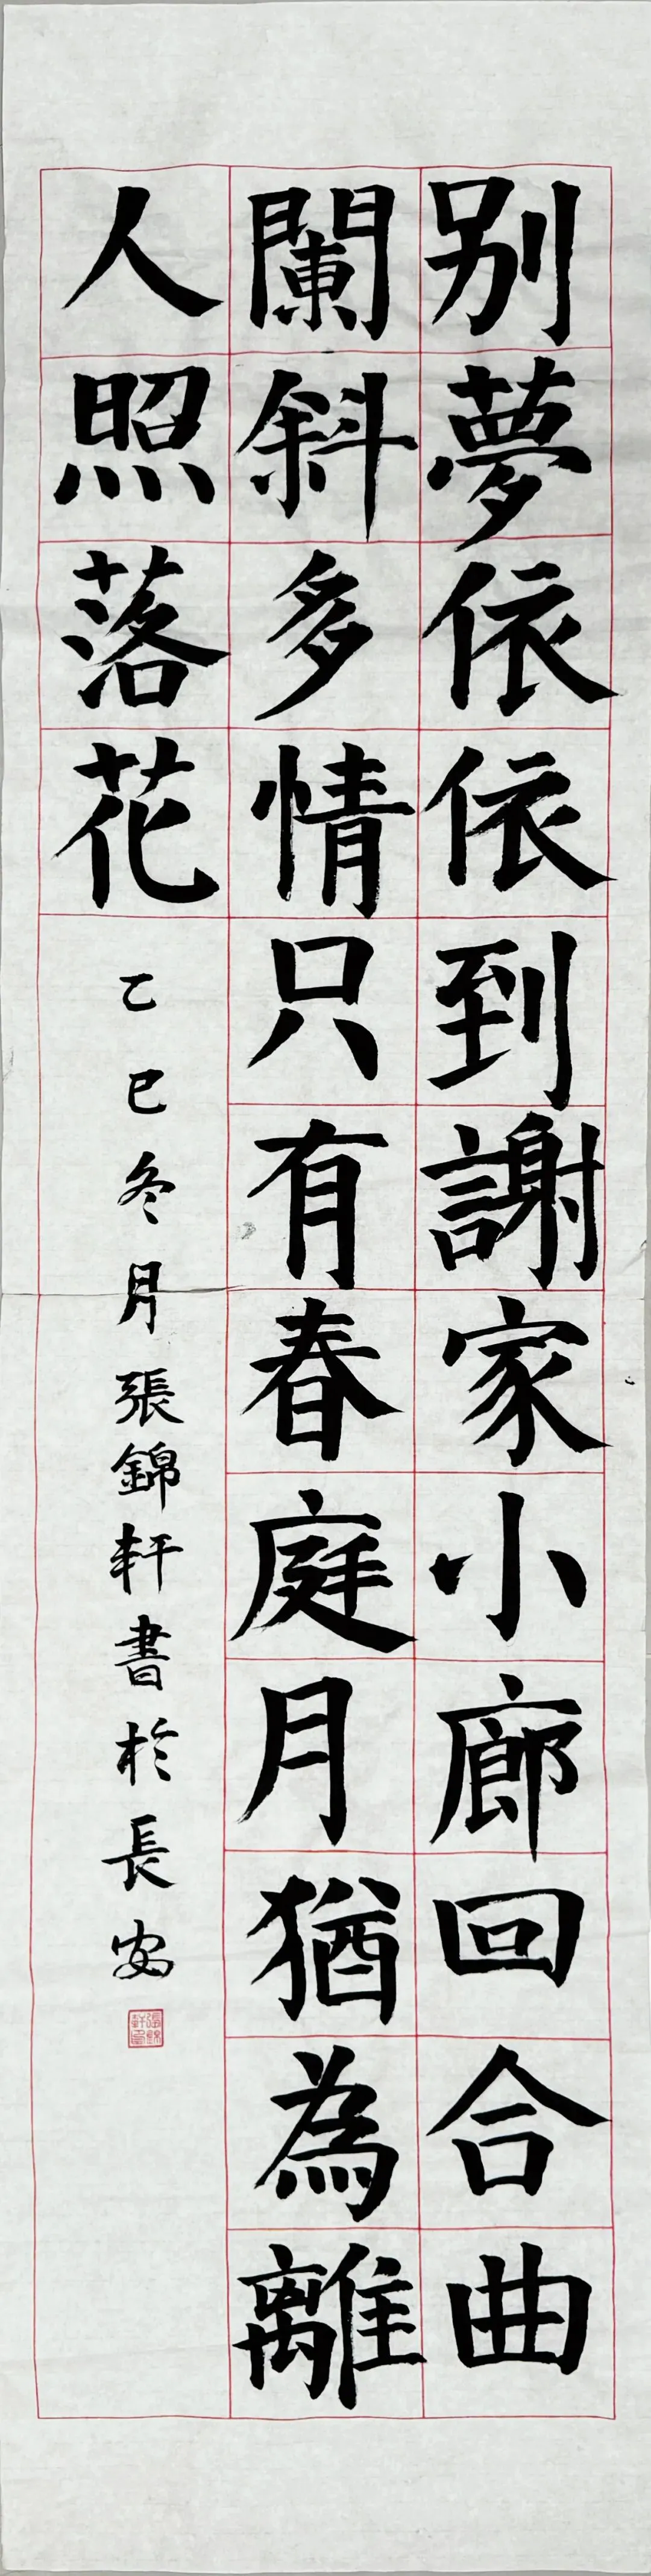 别夢依依到謝家小廊回合曲
闌斜多情只有春庭月猶為離
人照落花
乙巳冬月張錦軒書於長安